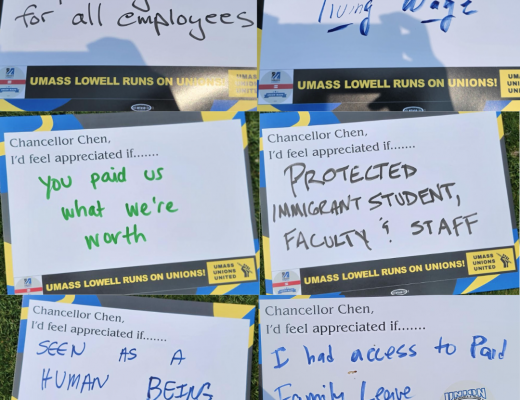 for all employees
UMASS LOWELL RUNS ON UNIONS!
living wage
UMASS LOWELL RUNS ON UNIONS!
Chancellor Chen,
I'd feel appreciated if.......
You paid us
what we're
worth
UMASS LOWELL RUNS ON UNIONS!
UMASS
UNIONS
UNITED
Chancellor Chen,
I'd feel appreciated if.......
PROTECTED
IMMIGRANT STUDENT,
FACULTY & STAFF
UMASS LOWELL RUNS ON UNIONS!
UMASS
UNIONS
UNITED
Chancellor Chen,
I'd feel appreciated if.......
SEEN AS A
HUMAN BEING
Chancellor Chen,
I'd feel appreciated if.......
I had access to Paid
Family Leave
UNION